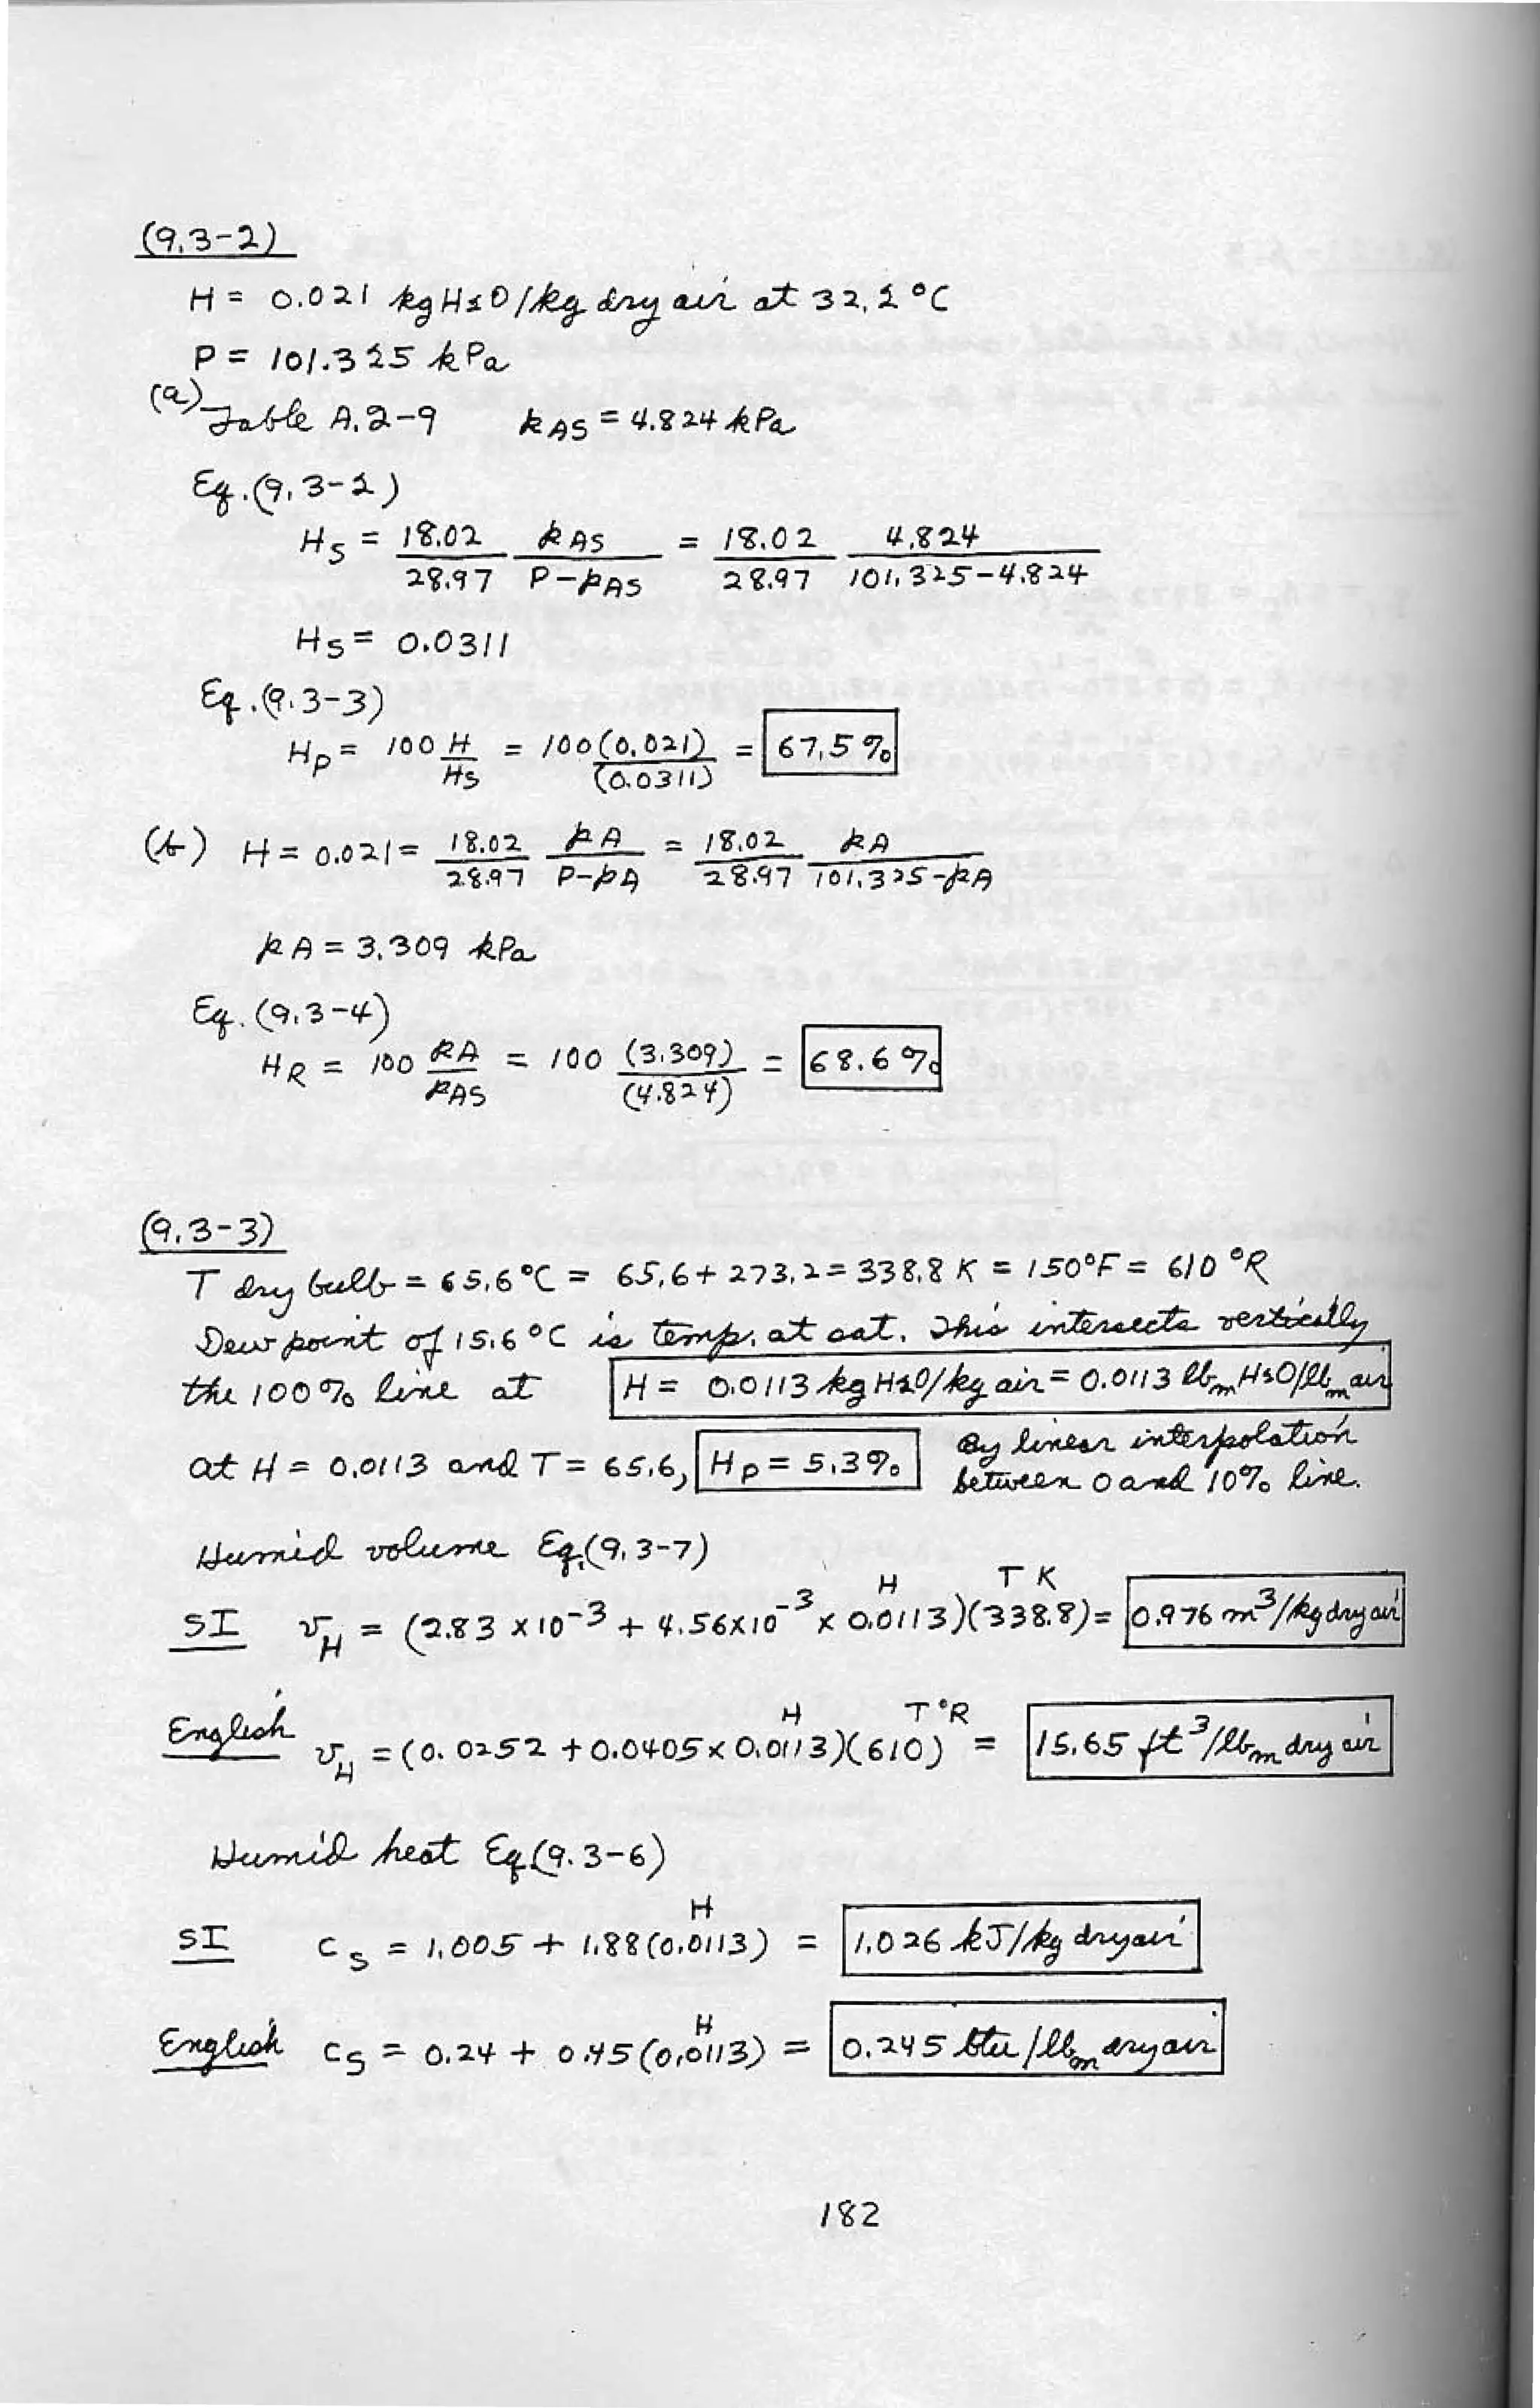 (9.3-2)
H = 0.021 kg H2O/kg dry air at 32.2 °C
P = 101.325 kPa
(a) Table A.2-9 pAS = 4.824 kPa
Eq. (9.3-2)
HS = 18.02/28.97 pAS/(P-pAS) = 18.02/28.97 4.824/(101.325-4.824)
HS = 0.0311
Eq. (9.3-3)
HP = 100 H/HS = 100(0.021)/(0.0311) = 67.5 %
(b) H = 0.021 = 18.02/28.97 pA/(P-pA) = 18.02/28.97 pA/(101.325-pA)
pA = 3.309 kPa
Eq. (9.3-4)
HR = 100 pA/pAS = 100 (3.309)/(4.824) = 68.6 %
(9.3-3)
T dry bulb = 65.6 °C = 65.6 + 273.2 = 338.8 K = 150°F = 610 °R
Dew point of 15.6 °C is temp. at sat. This intersects vertically
the 100% line at H = 0.0113 kg H2O/kg air = 0.0113 lbm H2O/lbm air
at H = 0.0113 and T = 65.6, HP = 5.3% By linear interpolation
between 0 and 10% line.
Humid volume Eq. (9.3-7)
H T K
SI vH = (2.83 x 10^-3 + 4.56 x 10^-3 x 0.0113)(338.8) = 0.976 m^3/kg dry air
H T °R
English vH = (0.0252 + 0.0405 x 0.0113)(610) = 15.65 ft^3/lbm dry air
Humid heat Eq. (9.3-6)
H
SI cS = 1.005 + 1.88(0.0113) = 1.026 kJ/kg dry air
H
English cS = 0.24 + 0.45(0.0113) = 0.245 btu/lbm dry air
182